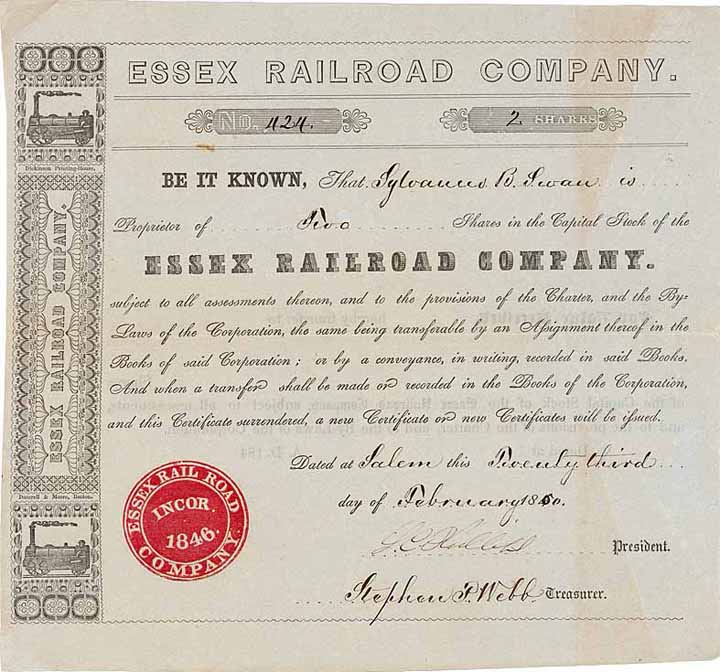 ESSEX RAILROAD COMPANY.
No. 424. 2 SHARES
Dickinson Printing-House,
BE IT KNOWN, That Sylvanus B. Swan is
Proprietor of Two Shares in the Capital Stock of the
ESSEX RAILROAD COMPANY.
subject to all assessments thereon, and to the provisions of the Charter, and the By-
Laws of the Corporation, the same being transferable by an Assignment thereof in the
Books of said Corporation; or by a conveyance, in writing, recorded in said Books.
And when a transfer shall be made or recorded in the Books of the Corporation,
and this Certificate surrendered, a new Certificate or new Certificates will be issued.
Dated at Salem this Twenty third
day of February 1850.
President.
Stephen P. Webb. Treasurer.
ESSEX RAILROAD COMPANY.
Boston.
ESSEX RAIL ROAD
INCOR.
1846.
COMPANY.